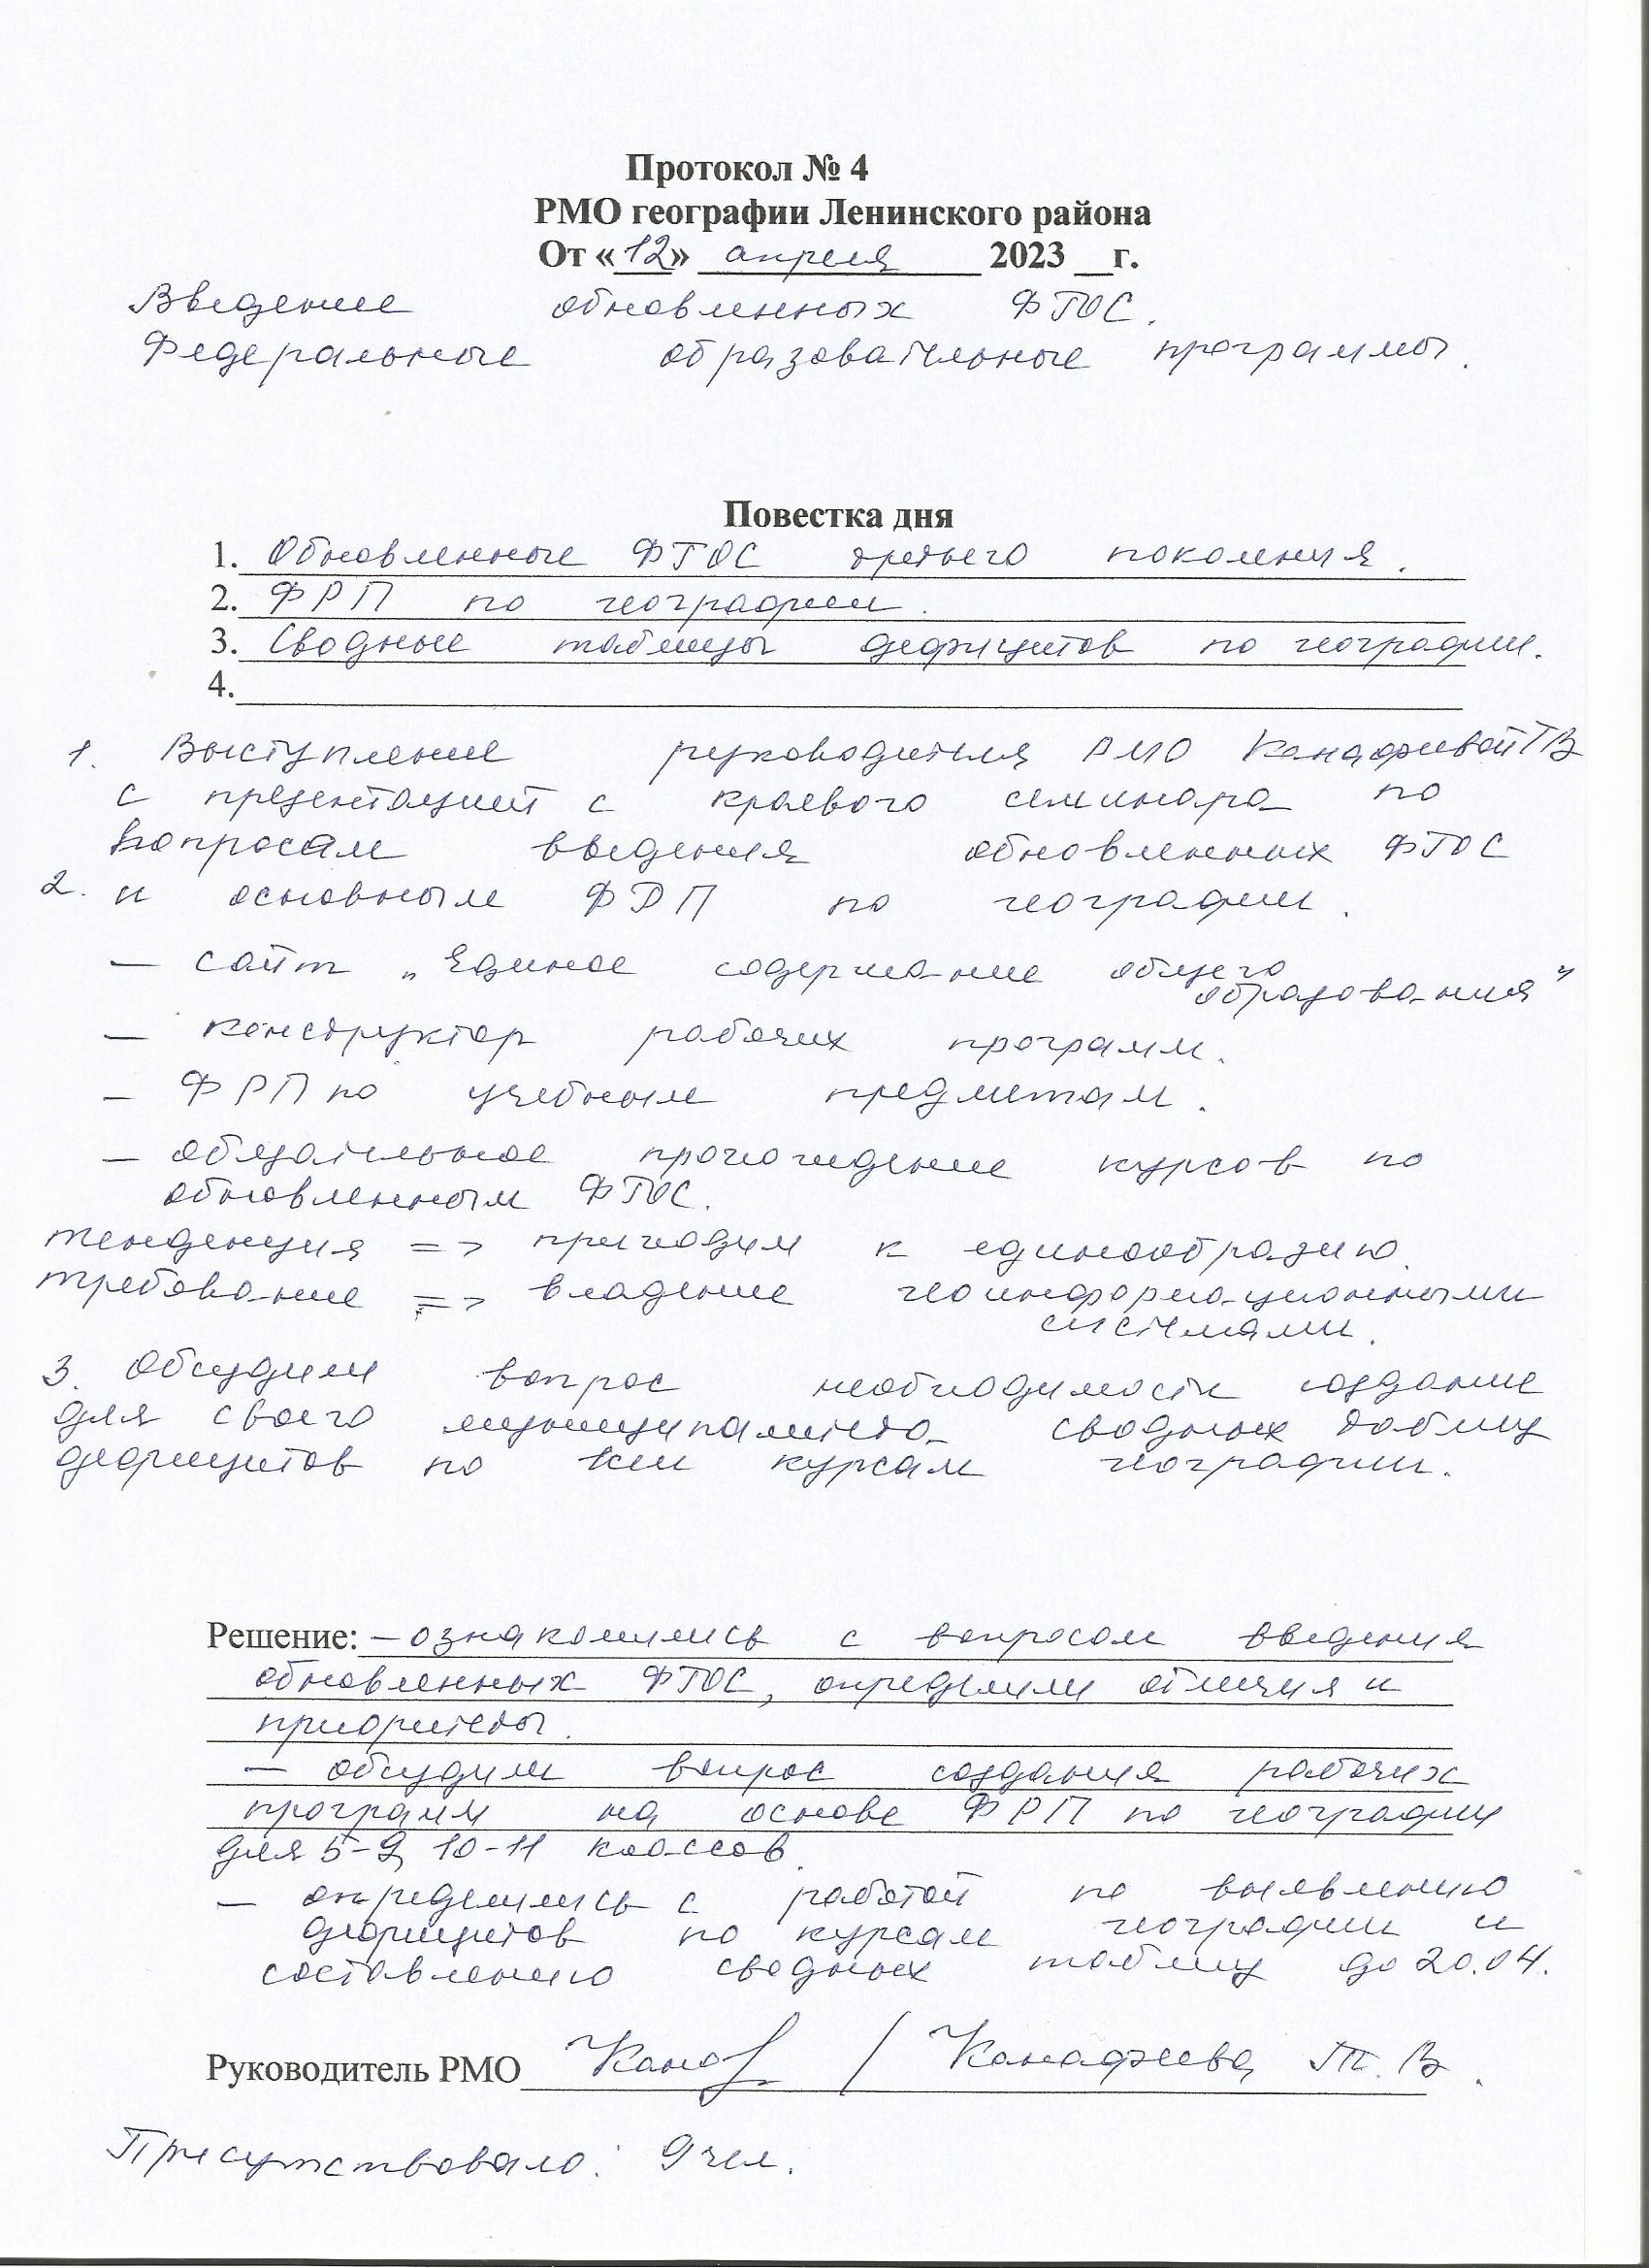 Протокол № 4
РМО географии Ленинского района
От «12» апреля 2023 __г.
Введение обновленных ФГОС.
Федеральные образовательные программы.
Повестка дня
1. Обновленные ФГОС третьего поколения.
2. ФРП по географии.
3. Сводные таблицы дефицитов по географии.
4.
1. Выступление руководителя РМО Канафиевой ТВ
с презентацией с краевого семинара по
вопросам введения обновленных ФГОС
2. и основным ФРП по географии.
— сайт „Единое содержание общего
образования"
— конструктор рабочих программ.
— ФРП по учебным предметам.
— обязательное прохождение курсов по
обновленным ФГОС.
тенденция => приходим к единообразию.
требование => владение геоинформационными
системами.
3. Обсудили вопрос необходимости создание
для своего муниципалитета сводных таблиц
дефицитов по всем курсам географии.
Решение: – ознакомились с вопросом введения
обновленных ФГОС, определили отличия и
приоритеты.
— обсудили вопрос создания рабочих
программ на основе ФРП по географии
для 5-9, 10-11 классов.
— определились с работой по выявлению
дефицитов по курсам географии и
составлению сводных таблиц до 20.04.
Руководитель РМО / Канафиева Т. В.
Присутствовало: 9 чел.